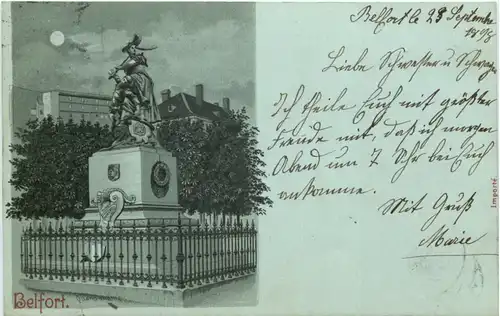 Belfort le 23 Septembre
1898
Liebe Schwester u Schwager
Ich theile Euch mit größter
Freude mit, daß ich morgen
Abend um 7 Uhr bei Euch
ankomme.
Mit Gruß
Marie
Importé.
Belfort.